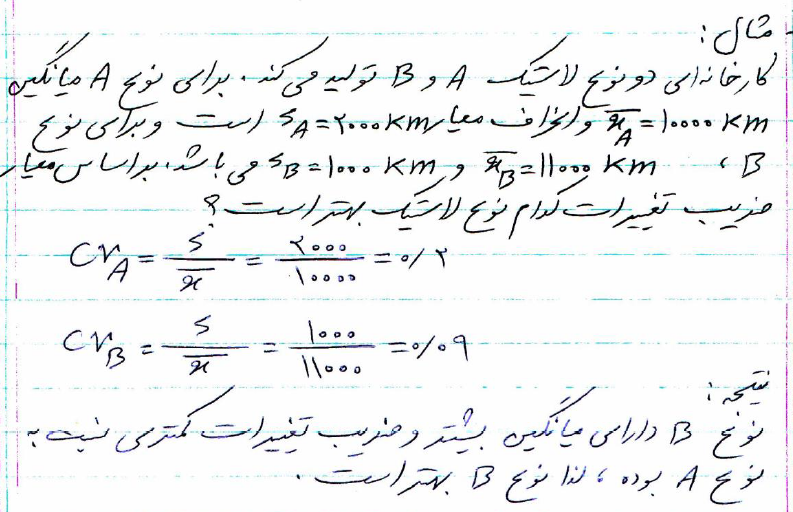 مثال :
کارخانه‌ای دو نوع لاستیک A و B تولید می‌کند . برای نوع A میانگین
x̄A = ۱۰۰۰۰ KM و انحراف معیار sA = ۲۰۰۰ KM است و برای نوع
B ، x̄B = ۱۱۰۰۰ KM و sB = ۱۰۰۰ KM می باشد، براساس معیار
ضریب تغییرات کدام نوع لاستیک بهتر است ؟
CVA = s / x̄ = ۲۰۰۰ / ۱۰۰۰۰ = ۰/۲
CVB = s / x̄ = ۱۰۰۰ / ۱۱۰۰۰ = ۰/۰۹
نتیجه :
نوع B دارای میانگین بیشتر و ضریب تغییرات کمتری نسبت به
نوع A بوده ، لذا نوع B بهتر است .